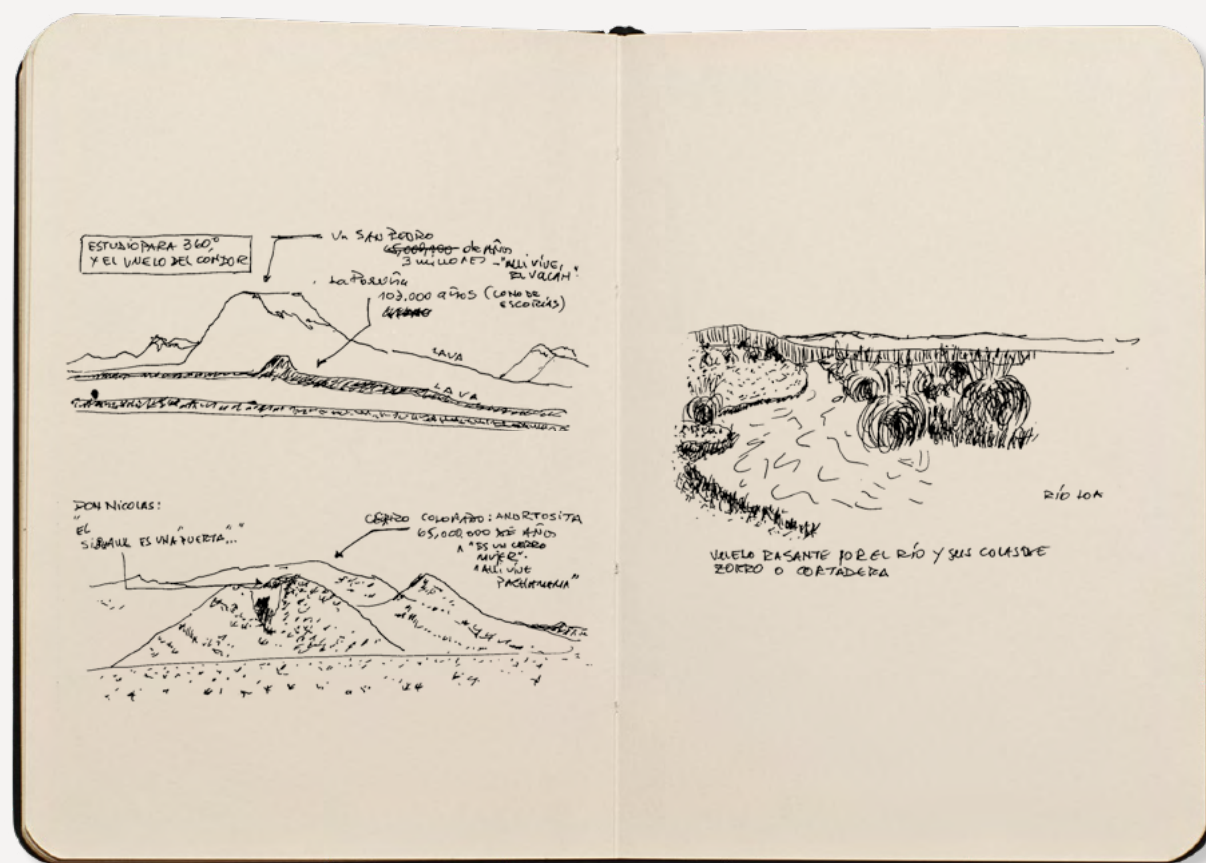 ESTUDIO PARA 360°
Y EL VUELO DEL CONDOR
Vn SAN PEDRO
65,000,000 de AÑOS
3 millones - "ALLI VIVE,
EL VOLCAN".
La Poruña
103,000 años (CONO DE
ESCORIAS)
LAVA
LAVA
DON NICOLAS:
"EL
ES UNA PUERTA..."
CERRO COLORADO: ANORTOSITA
65,000,000 DE AÑOS
"ES UN CERRO
MUJER".
"ALLI VIVE
PACHAMAMA"
RÍO LOA
VUELO RASANTE POR EL RÍO Y SUS COLAS DE
ZORRO O CORTADERA